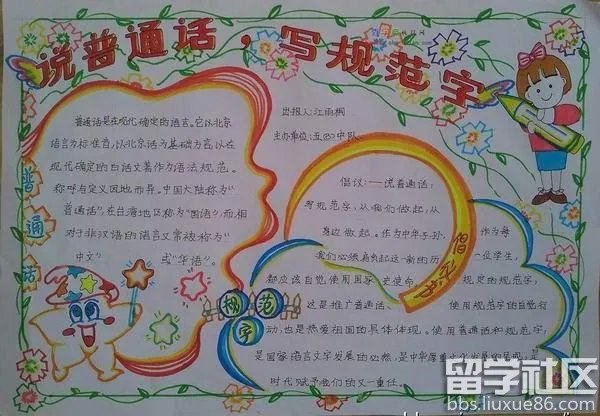 说普通话，写规范字
出报人:江雨桐
主办单位:五(3)中队
普通话是在现代确定的语言。它以北京
语言为标准音,以北京话为基础方言,以在
现代确定的白话文著作为语法规范。
称呼与定义因地而异。中国大陆称为“
普通话”,在台湾地区称为“国语”,而相
对于非汉语的语言又常被称为“
中文” 或“华语”。
普通话
倡议:——说普通话,
写规范字,从我们做起,从
身边做起。作为中华子孙, 作为每
我们必须肩负起这一新的历 一位学生,
都应该自觉使用国家 史使命, 规定的规范字,
这是推广普通话、 使用规范字的自觉行
动,也是热爱祖国的具体体现。使用普通话和规范字,
是国家语言文字发展的必然,是中华
时代赋予我们的又一重任。
规范字
留学社区
bbs.liuxue86.com